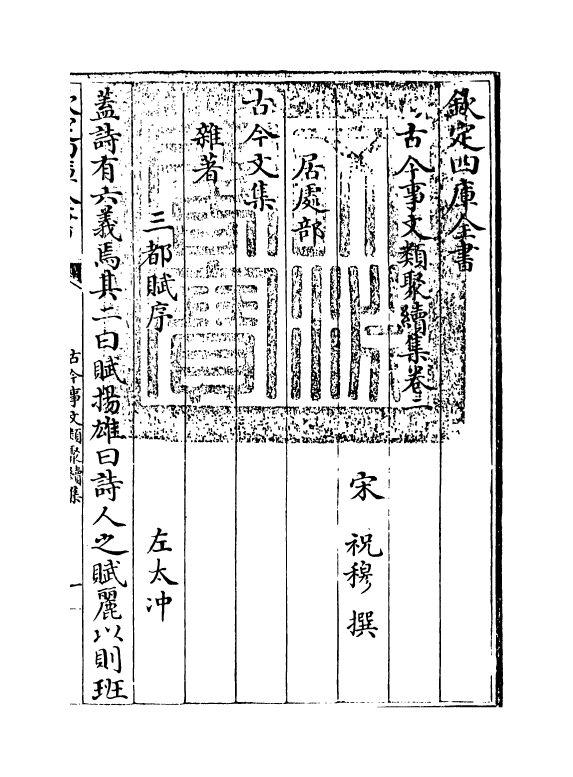 欽定四庫全書
古今事文類聚續集卷二
宋 祝穆 撰
居處部
古今文集
雜著
三都賦序 左太冲
蓋詩有六義焉其二曰賦揚雄曰詩人之賦麗以則班
古今事文類聚續集
一